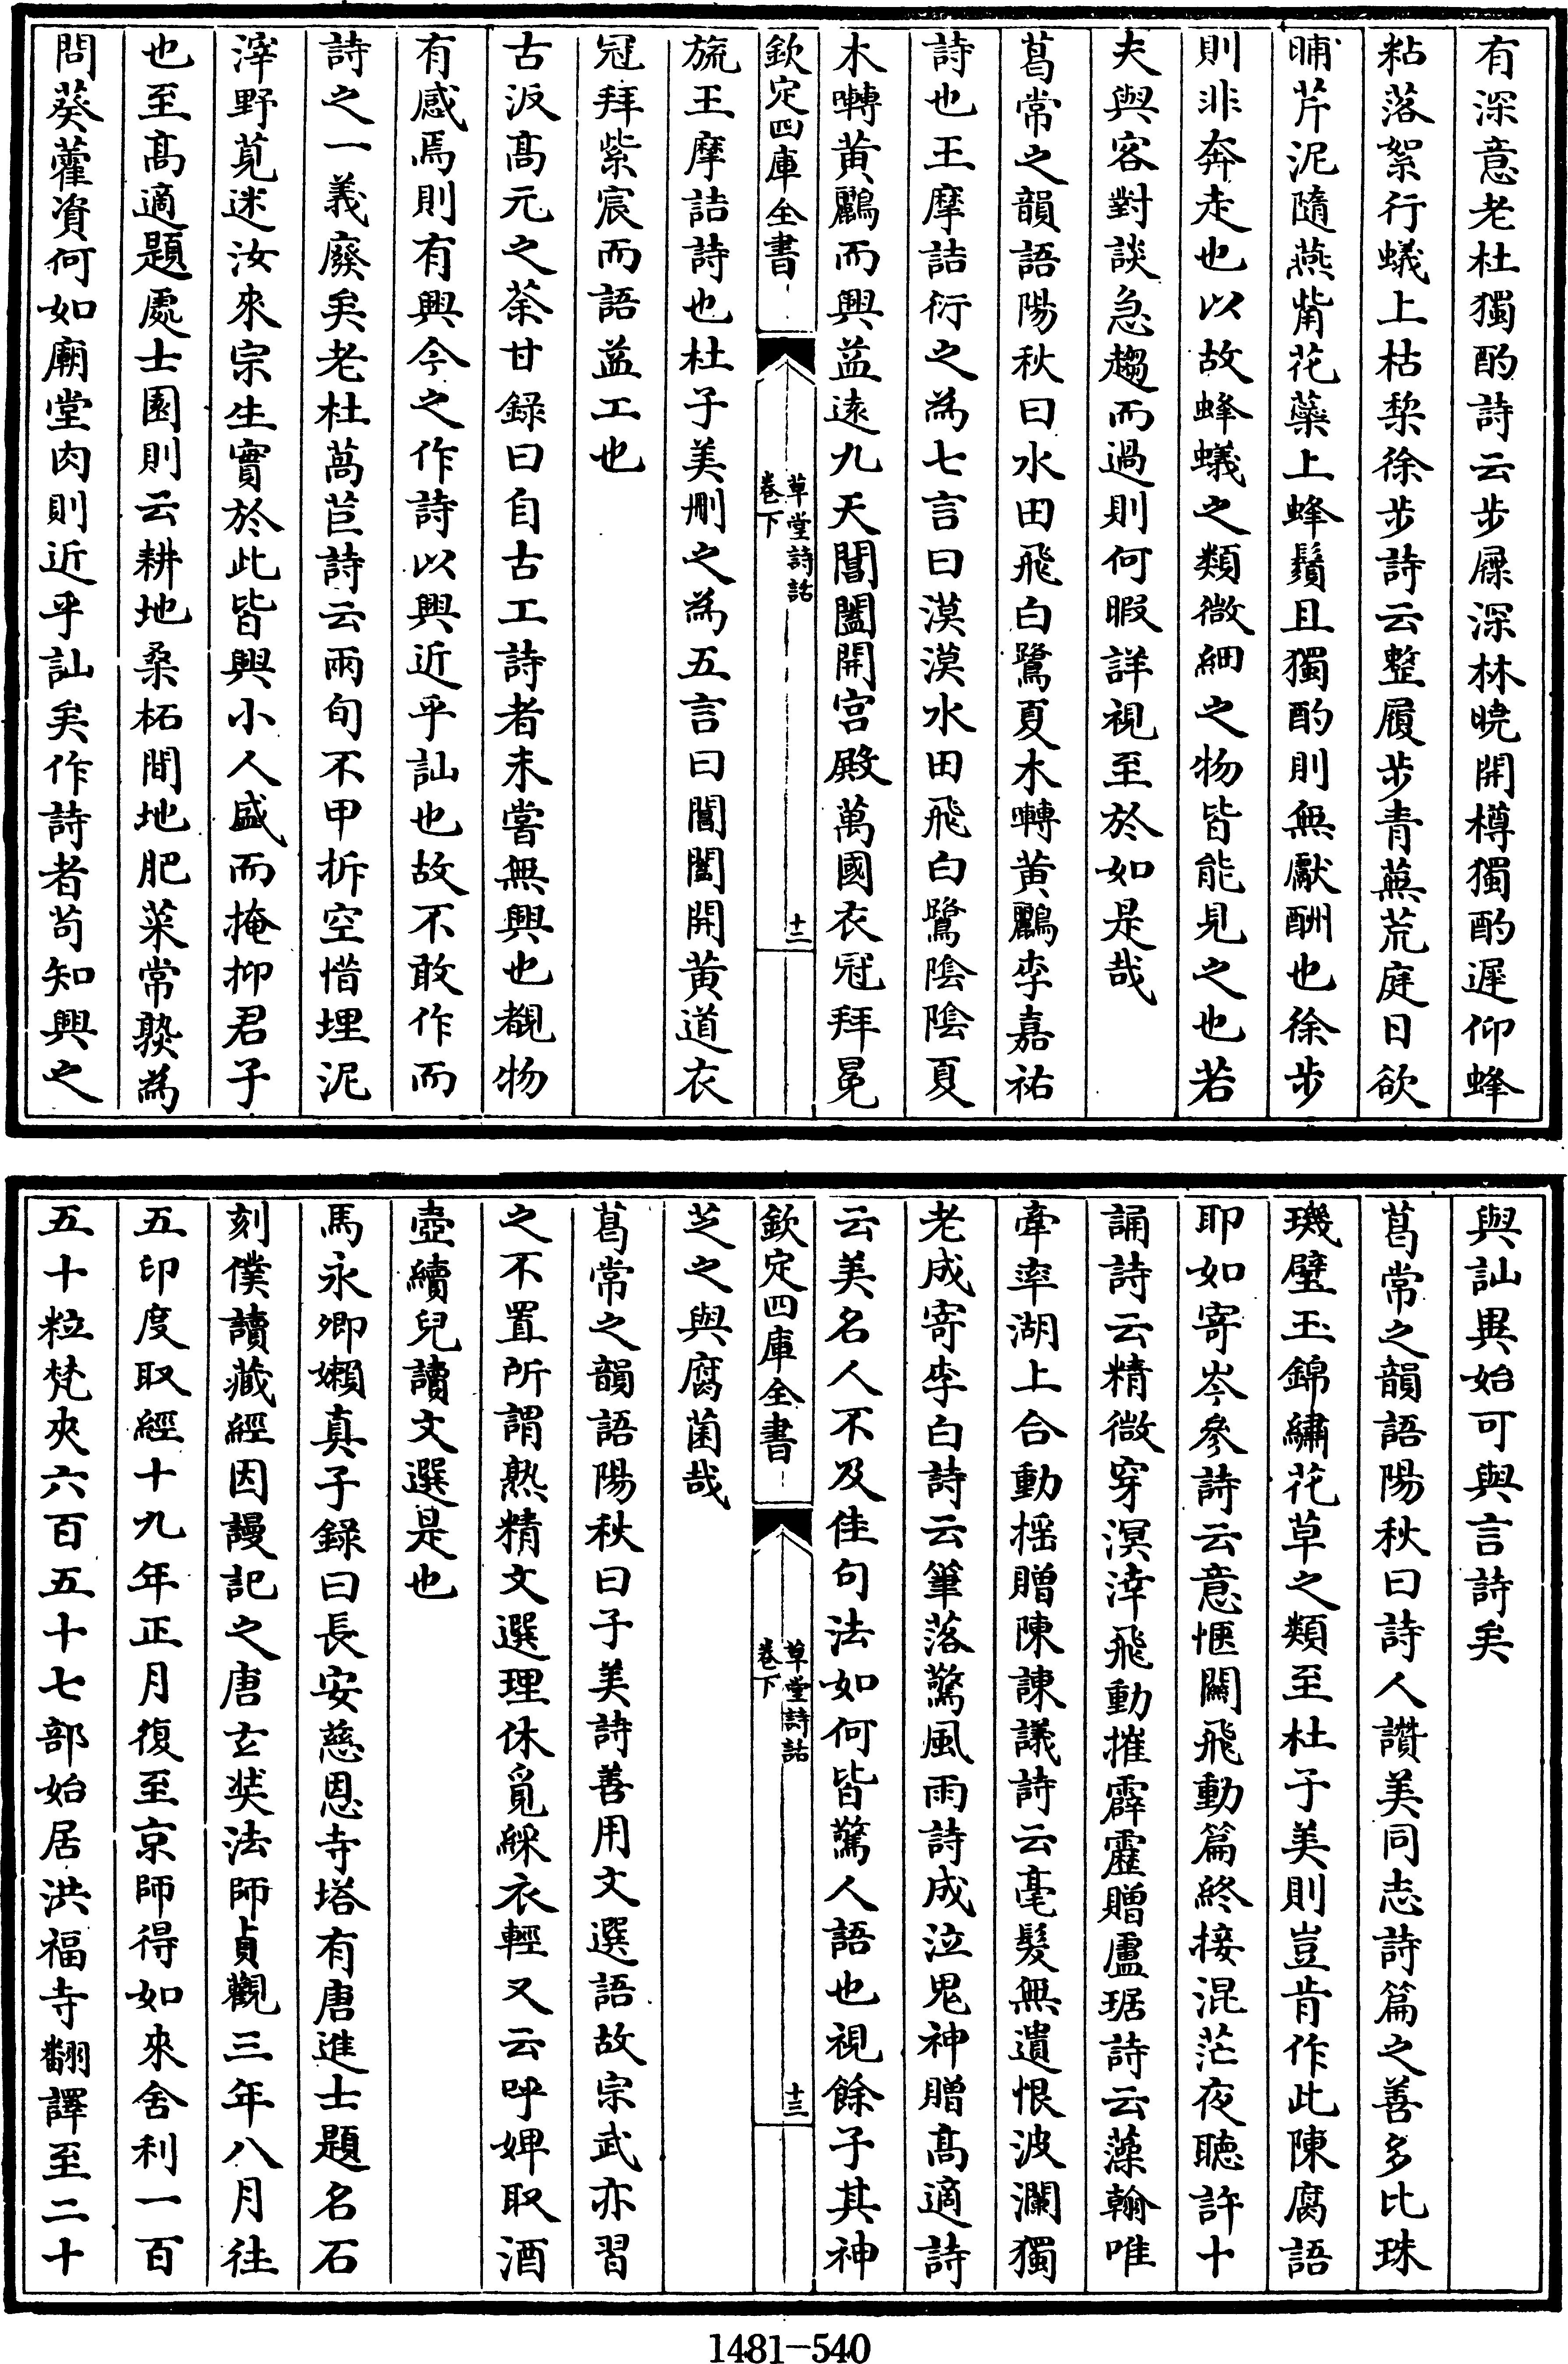 有深意老杜獨酌詩云步屧深林晚開樽獨酌遲仰蜂
粘落絮行蟻上枯棃徐步詩云整履步青蕪荒庭日欲
晡芹泥隨燕觜花蘂上蜂鬚且獨酌則無獻酬也徐步
則非奔走也以故蜂蟻之類微細之物皆能見之也若
夫與客對談急趨而過則何暇詳視至於如是哉
葛常之韻語陽秋曰水田飛白鷺夏木囀黄鸝李嘉祐
詩也王摩詰衍之為七言曰漠漠水田飛白鷺隂隂夏
木囀黄鸝而興益逺九天閶闔開宫殿萬國衣冠拜冕
欽定四庫全書
草堂詩話
卷下
十二
旒王摩詰詩也杜子美刪之為五言曰閶闔開黄道衣
冠拜紫宸而語益工也
古汳髙元之荼甘録曰自古工詩者未嘗無興也覩物
有感焉則有興今之作詩以興近乎訕也故不敢作而
詩之一義廢矣老杜萵苣詩云兩旬不甲拆空惜埋泥
滓野莧迷汝來宗生實於此皆興小人盛而掩抑君子
也至髙適題處士園則云耕地桑柘間地肥菜常熟為
問葵藿資何如廟堂肉則近乎訕矣作詩者茍知興之
與訕異始可與言詩矣
葛常之韻語陽秋曰詩人讚美同志詩篇之善多比珠
璣璧玉錦繡花草之類至杜子美則豈肯作此陳腐語
耶如寄岑參詩云意愜闗飛動篇終接混茫夜聴許十
誦詩云精微穿溟涬飛動摧霹靂贈盧琚詩云藻翰唯
牽率湖上合動揺贈陳諌議詩云毫髮無遺恨波瀾獨
老成寄李白詩云筆落驚風雨詩成泣鬼神贈髙適詩
云美名人不及佳句法如何皆驚人語也視餘子其神
欽定四庫全書
草堂詩話
卷下
十三
芝之與腐菌哉
葛常之韻語陽秋曰子美詩善用文選語故宗武亦習
之不置所謂熟精文選理休覓綵衣輕又云呼婢取酒
壺續兒讀文選是也
馬永卿嬾真子録曰長安慈恩寺塔有唐進士題名石
刻僕讀藏經因謾記之唐玄奘法師貞觀三年八月往
五印度取經十九年正月復至京師得如來舍利一百
五十粒梵夾六百五十七部始居洪福寺翻譯至二十
1481-540